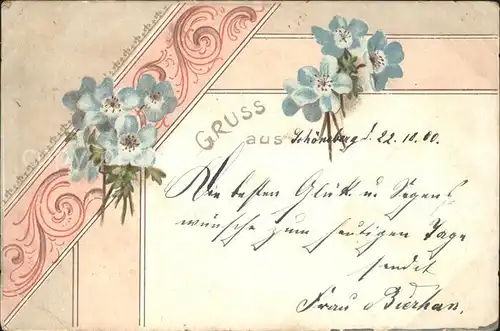 GRUSS
aus Schöneberg d. 22.10.00.
Die besten Glück u. Segens
wünsche zum heutigen Tage
sendet
Frau Bierhan.